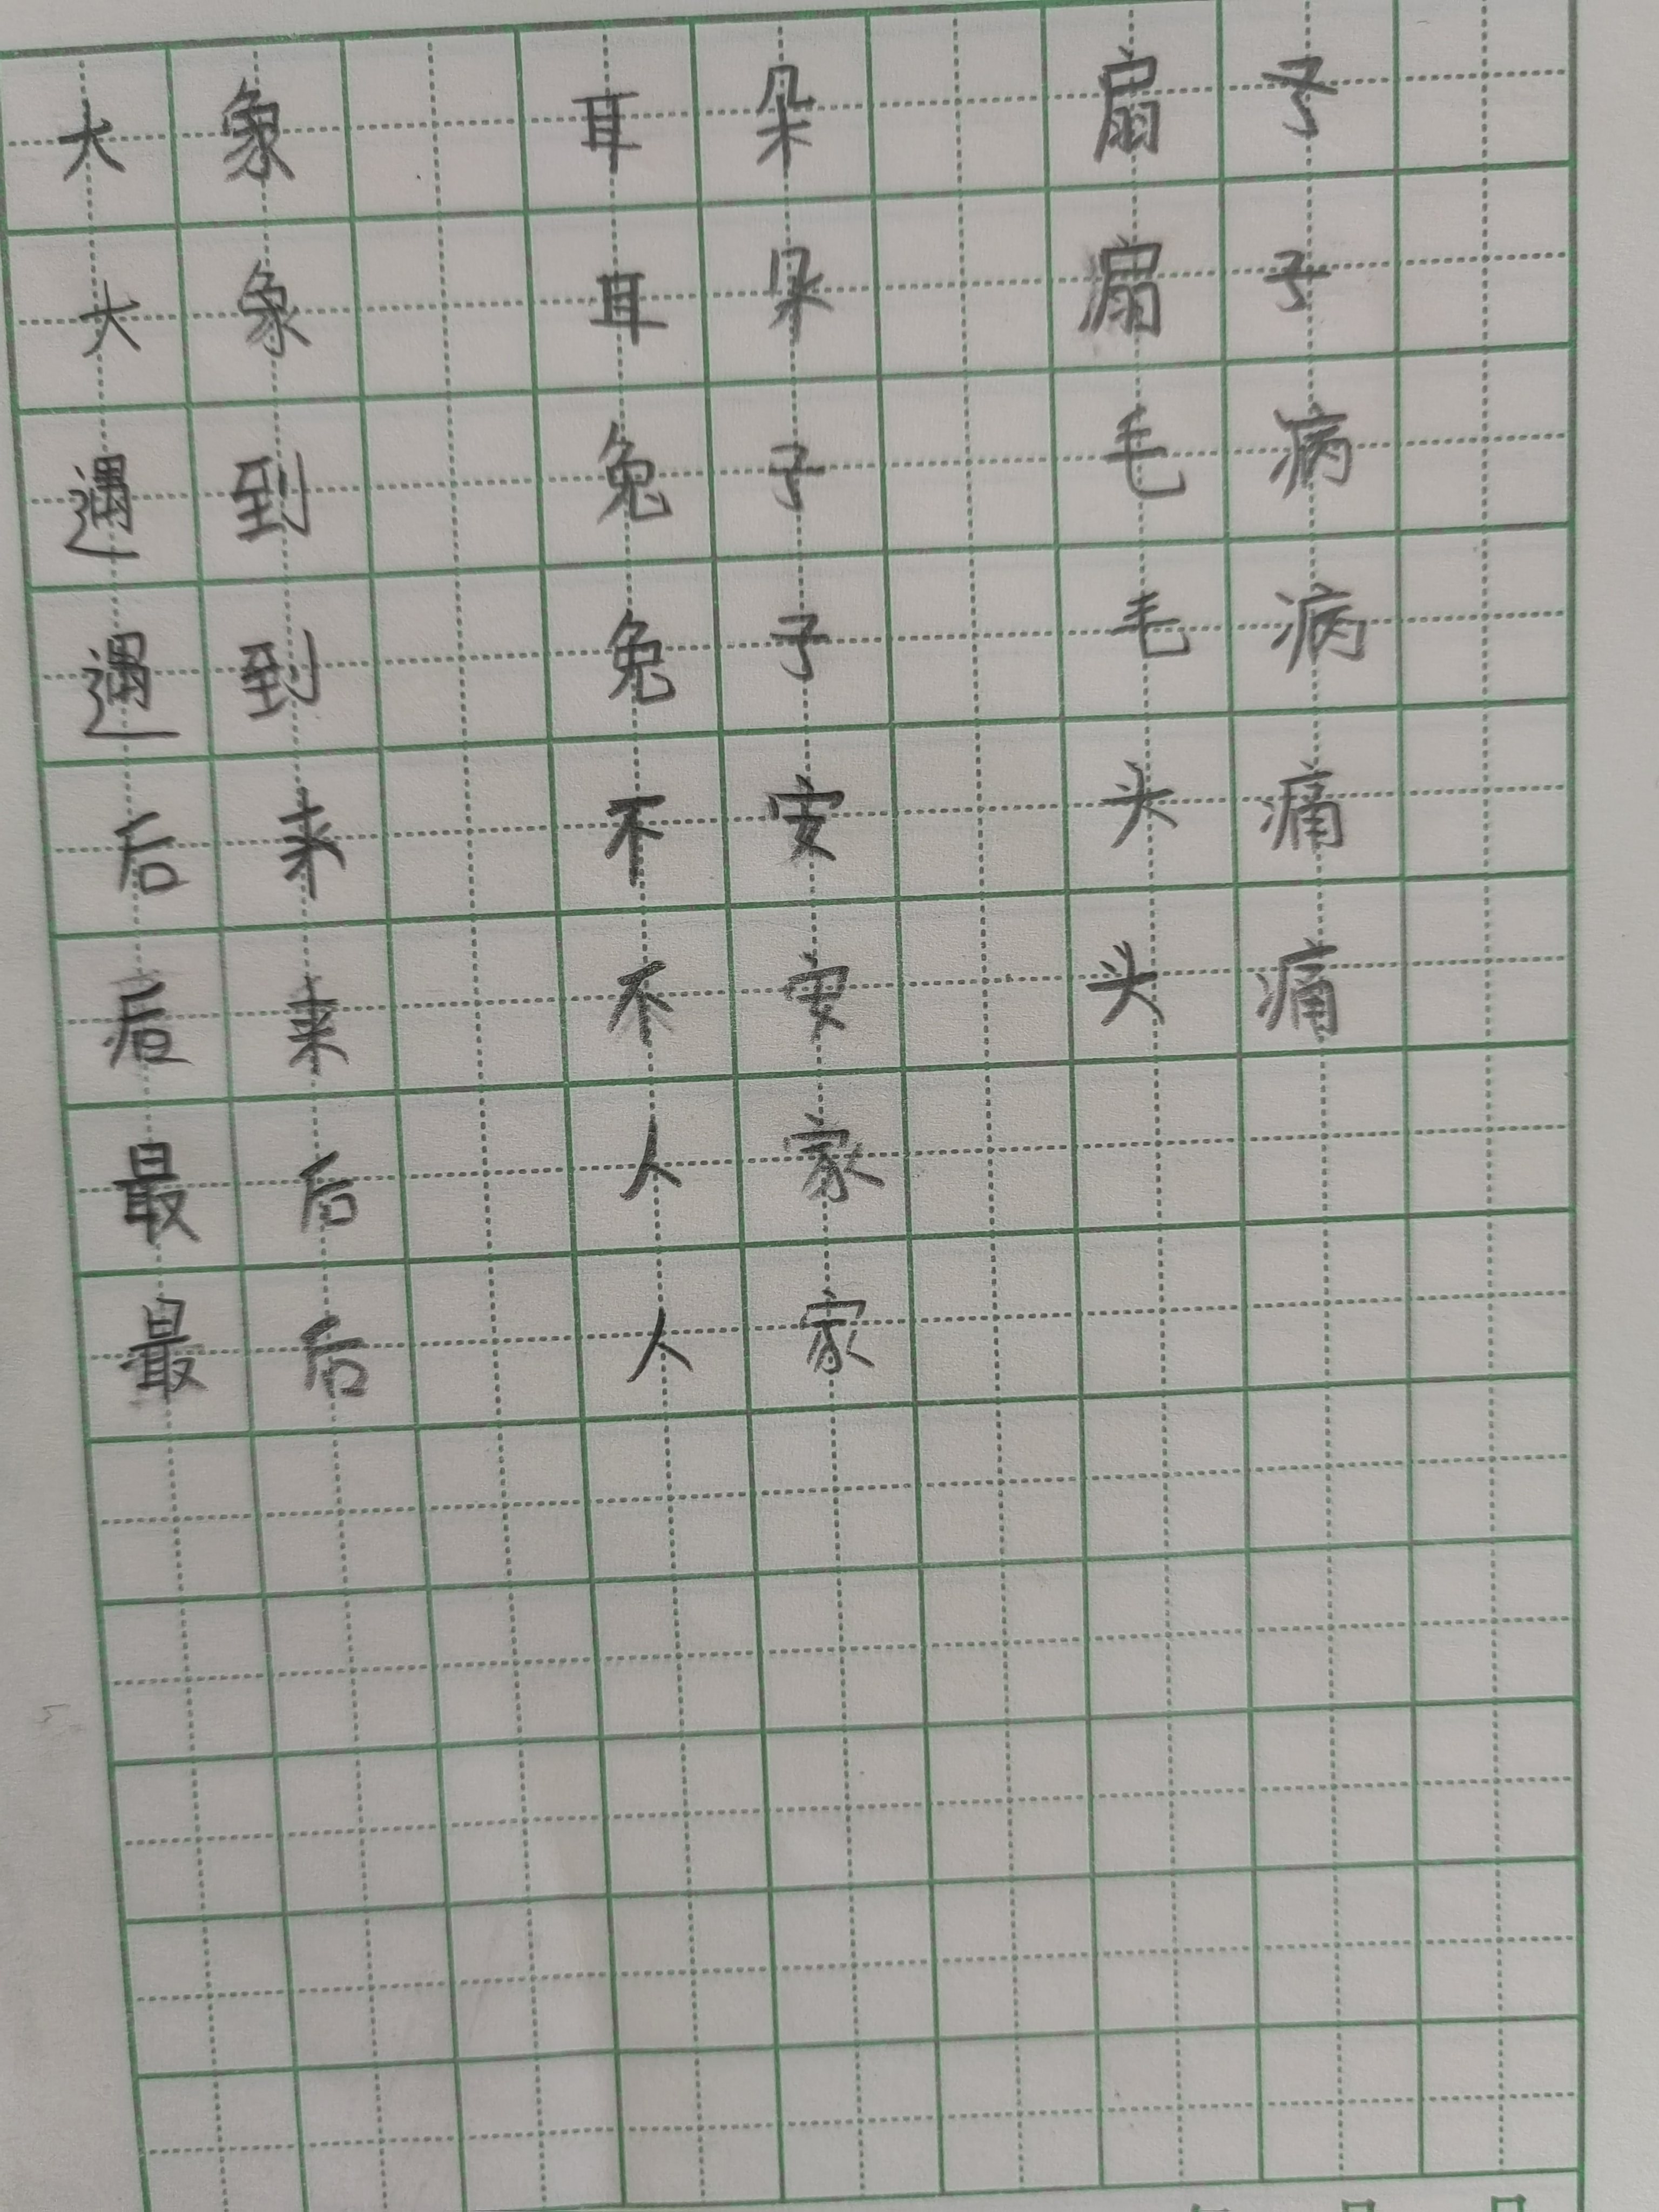 大象 耳朵 扇子
大象 耳朵 扇子
遇到 兔子 毛病
遇到 兔子 毛病
后来 不安 头痛
后来 不安 头痛
最后 人家
最后 人家